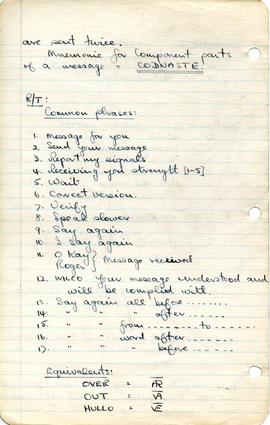 are sent twice.
Mnemonic for Component parts
of a message = CODNASTE
R/T:
Common phrases:
1. Message for you
2. Send your message
3. Report my signals
4. Receiving you strength [1-5]
5. Wait
6. Correct version.
7. Verify
8. Speak slower
9. Say again
10. I say again
11. O Kay } Message received
Roger
12. Wilco Your message understood and
will be complied with
13. Say again all before ........
14. " " " after ........
15. " " from ........ to ........
16. " " word after ........
17. " " " before ........
Equivalents:
OVER = AR
OUT = VA
HULLO = VE